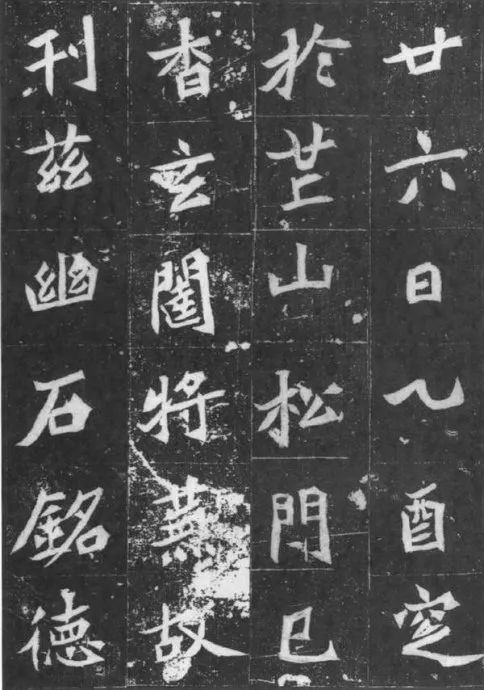 廿六日乙酉窆
於芒山松門已
杳玄闥將蕪故
刊茲幽石銘德